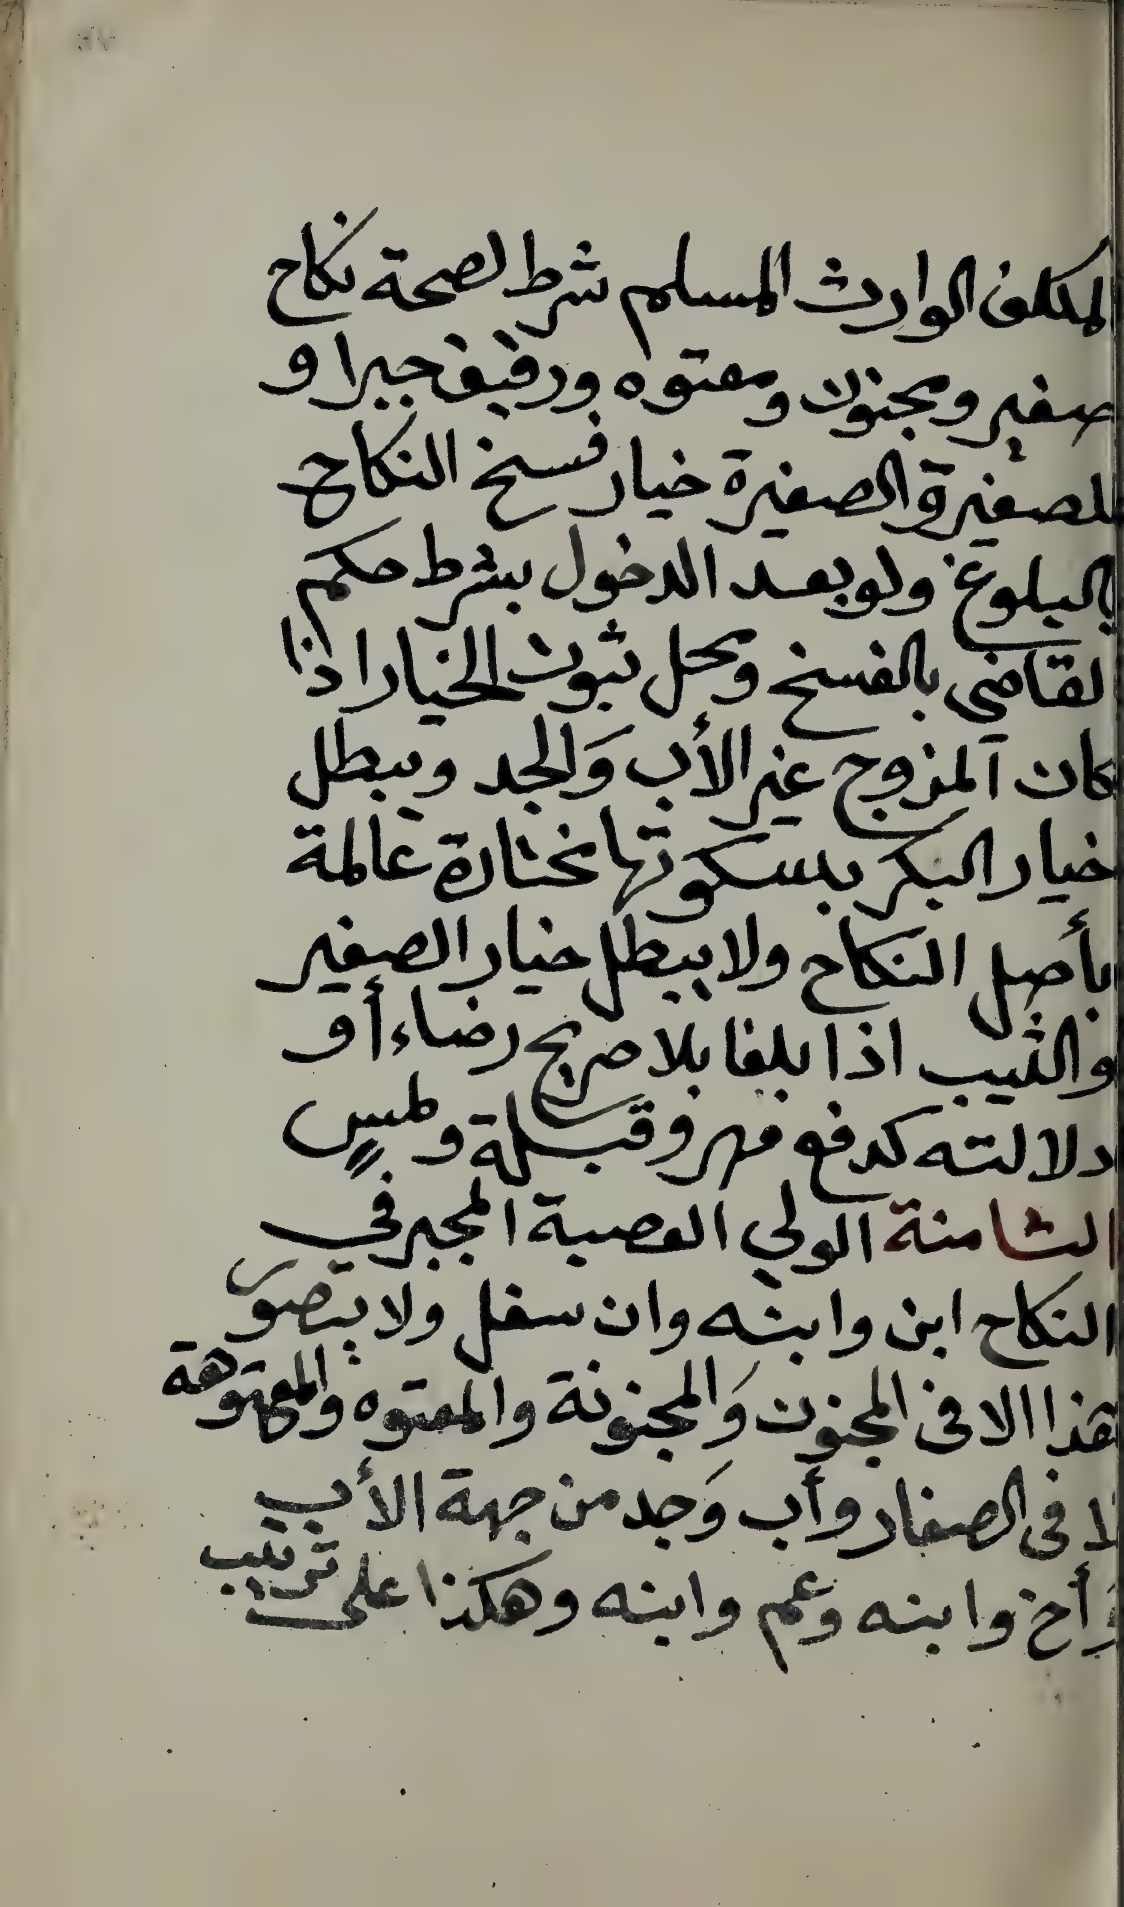 المكلف الوارث المسلم شرط لصحة نكاح
صغير ومجنون ومعتوه ورقيق جبرا و
للصغيرة والصغيرة خيار فسخ النكاح
بالبلوغ ولو بعد الدخول بشرط حكم
القاضي بالفسخ ومحل ثبوت الخيار اذا
كان المزوج غير الأب وَالجد ويبطل
خيار البكر بسكوتها مختارة عالمة
بأصل النكاح ولا يبطل خيار الصغير
والثيب اذا بلغا بلا صريح رضاء أو
دلالته كدفع مهر وقبلة ولمسٍ
الثامنة الولي العصبة المجبر في
النكاح ابن وابنه وان سفل ولا يتصور
هذا الا في المجنون وَالمجنونة والمعتوه والمعتوهة
لا في الصغار وأب وَجد من جهة الأب
وأخ وابنه وعم وابنه وهكذا على ترتيب